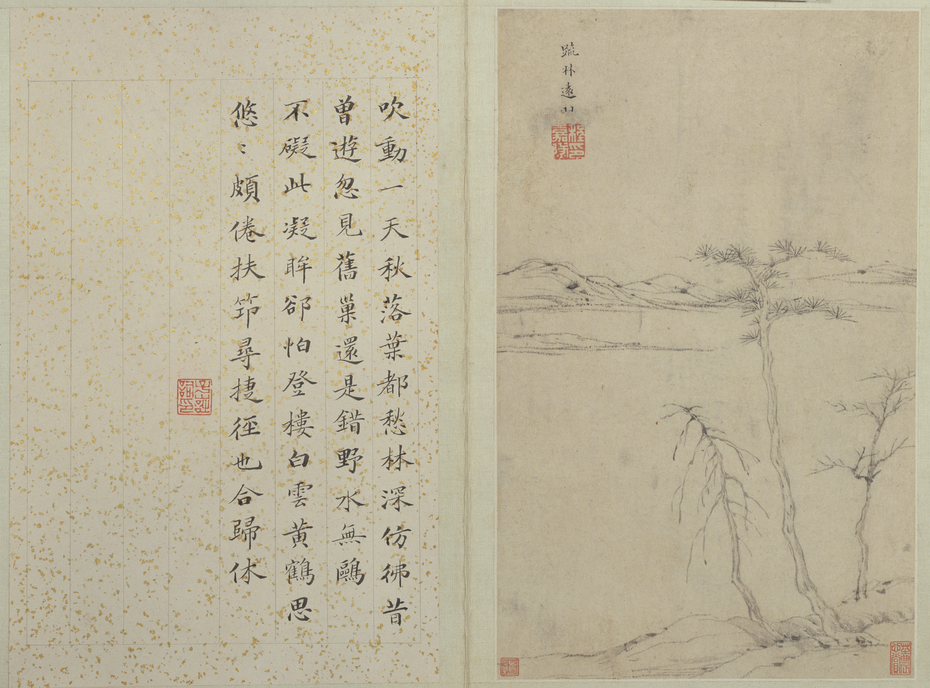 疏林遠山
吹動一天秋落葉都愁林深仿彿昔
曾遊忽見舊巢還是錯野水無鷗
不礙此凝眸卻怕登樓白雲黃鶴思
悠〻頗倦扶筇尋捷徑也合歸休